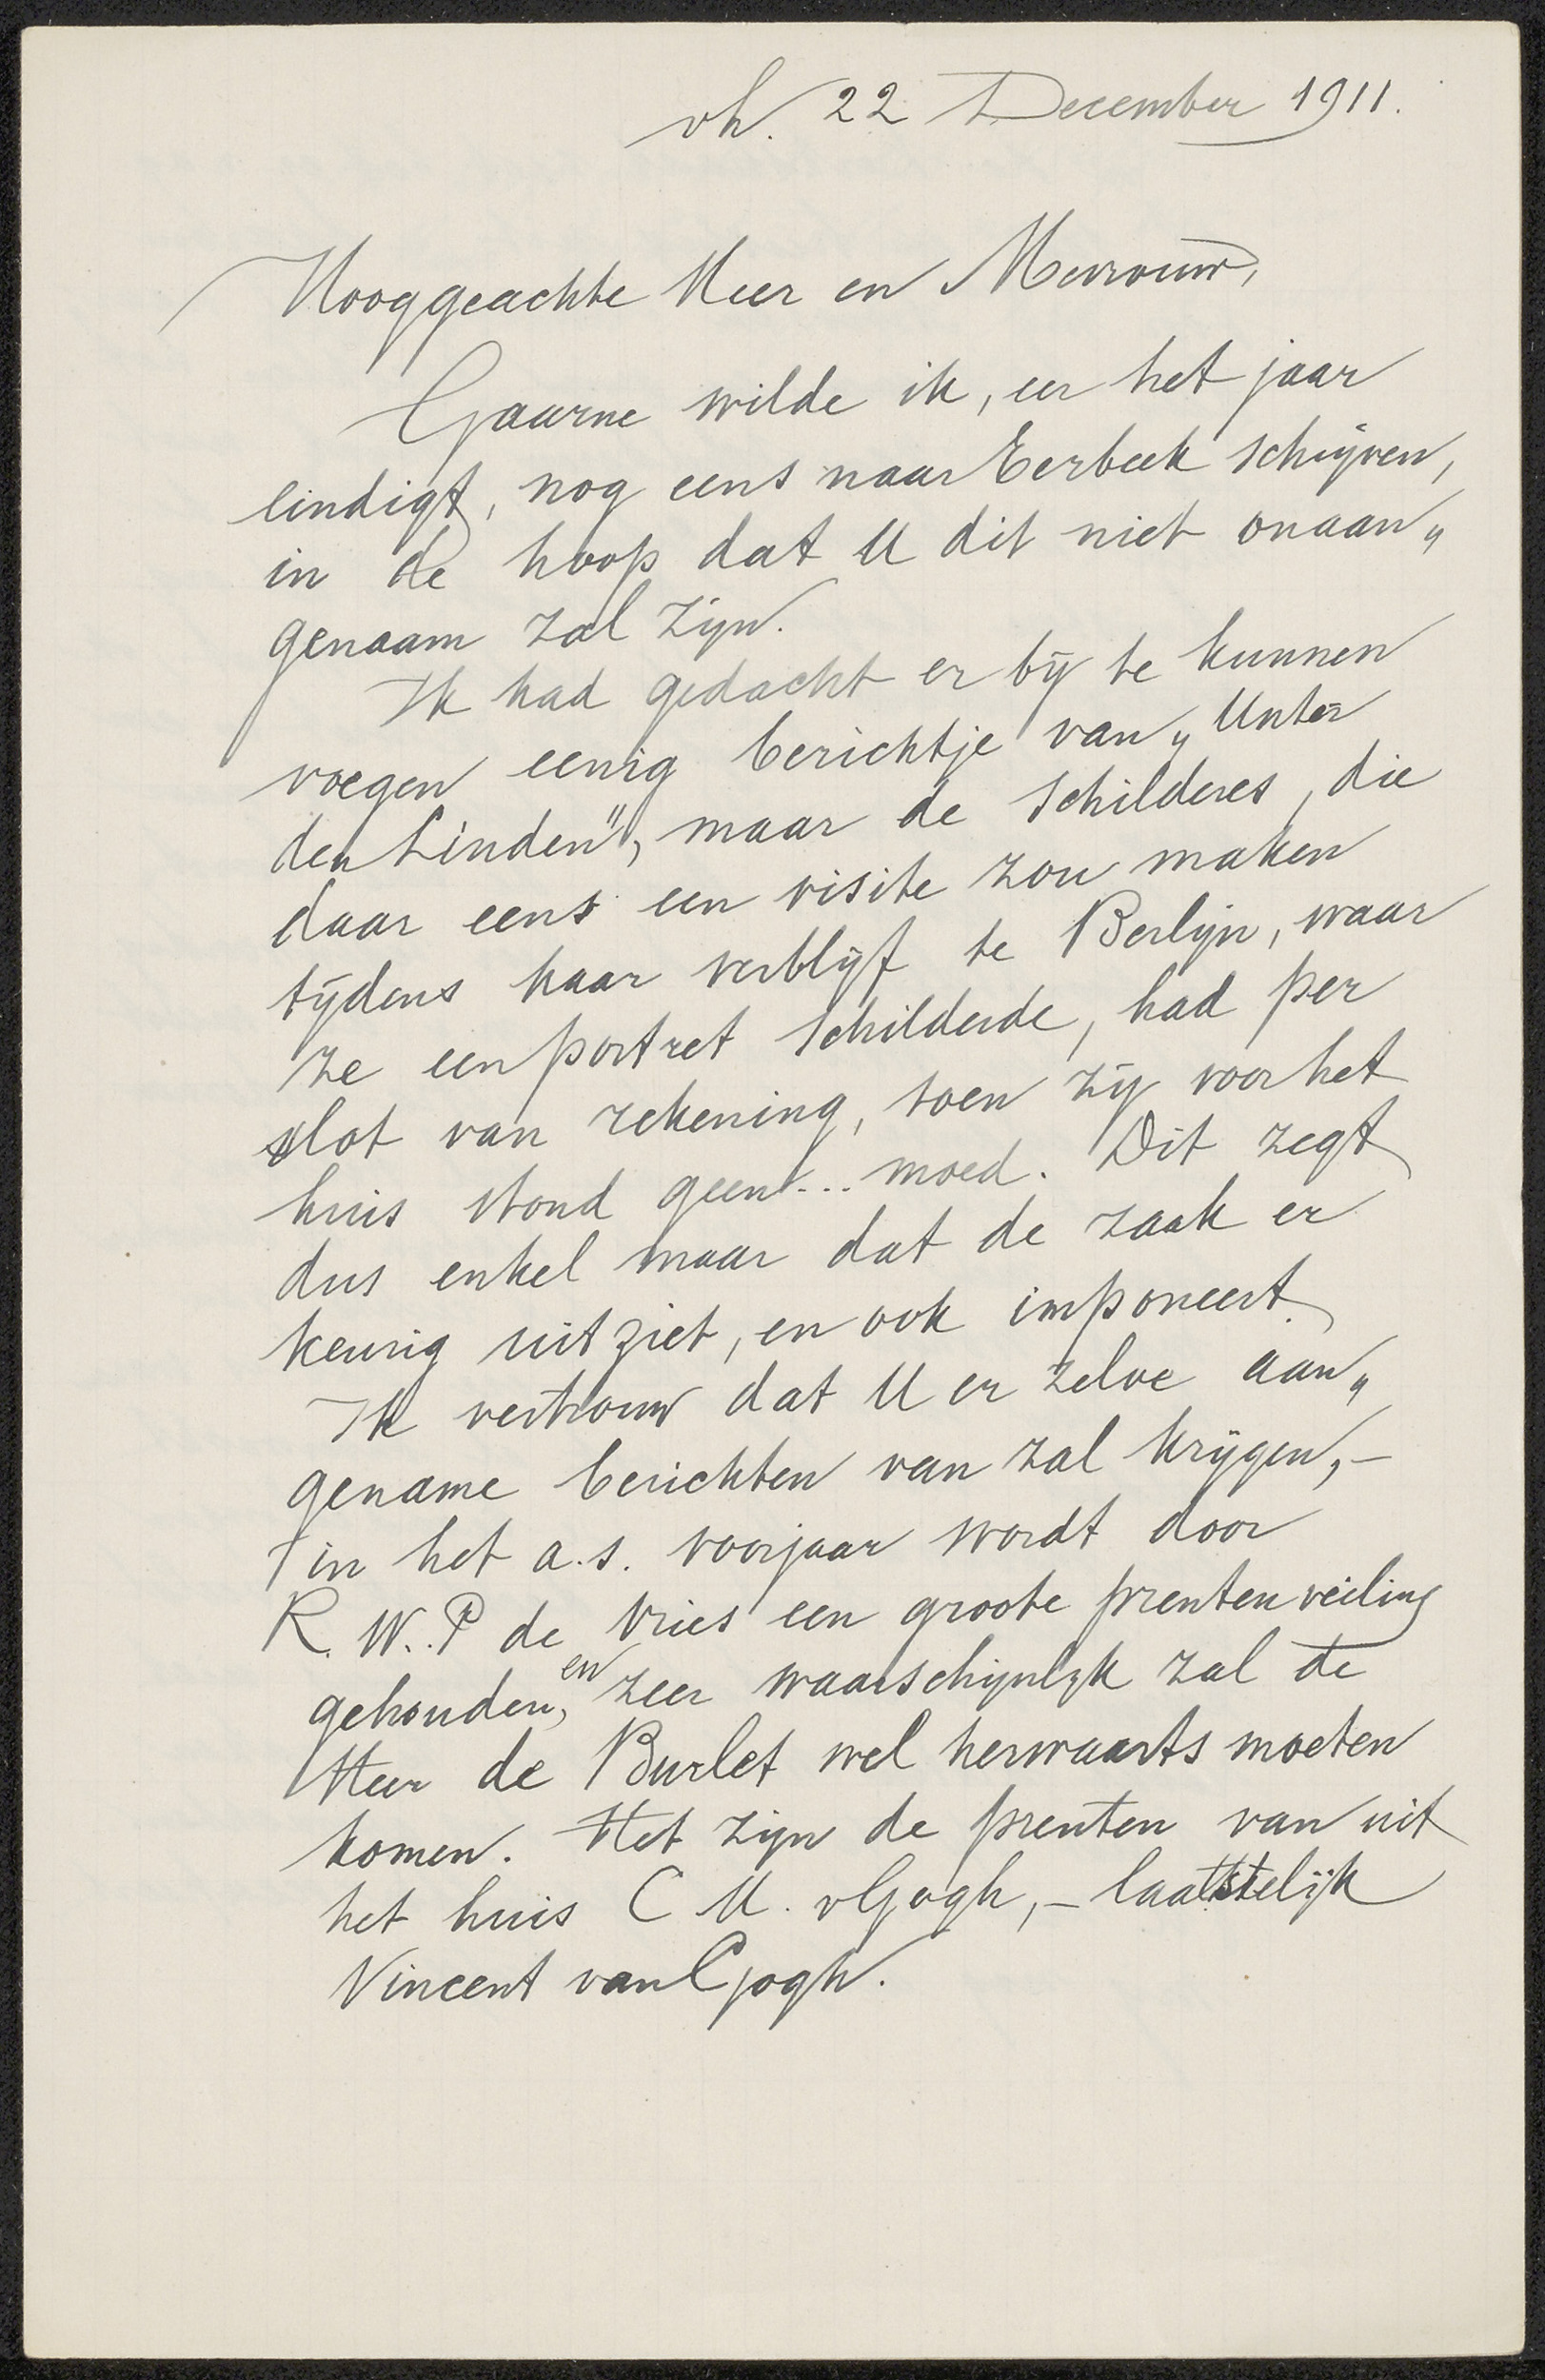 vh. 22 December 1911.
Hooggeachte Heer en Mevrouw,
Gaarne wilde ik, eer het jaar
eindigt, nog eens naar Eerbeek schrijven,
in de hoop dat U dit niet onaan„
genaam zal zijn.
Ik had gedacht er bij te kunnen
voegen eenig berichtje van „Unter
den Linden", maar de schilderes, die
daar eens een visite zou maken
tijdens haar verblijf te Berlijn, waar
ze een portret schilderde, had per
slot van rekening, toen zij voor het
huis stond geen... moed. Dit zegt
dus enkel maar dat de zaak er
keurig uitziet, en ook imponeert.
Ik vertrouw dat U er zelve aan„
gename berichten van zal krijgen, –
in het a.s. voorjaar wordt door
R. W. P de Vries een groote prentenveiling
gehouden, en zeer waarschijnlijk zal de
Heer de Burlet wel herwaarts moeten
komen. Het zijn de prenten van uit
het huis C M. v Gogh, – laatstelijk
Vincent van Gogh.